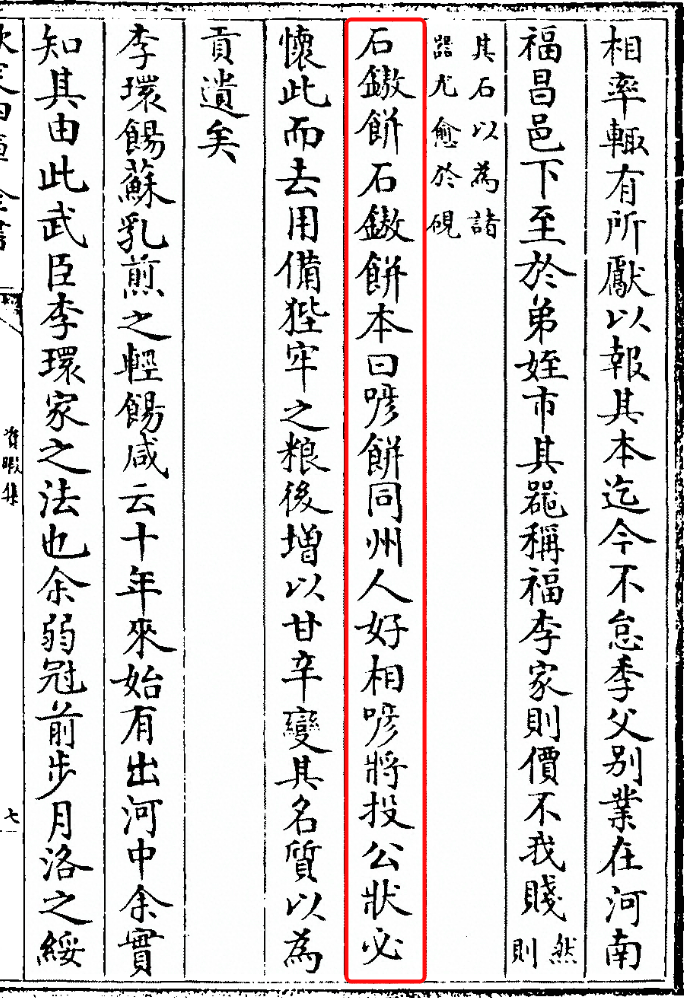 相率輙有所獻以報其本迄今不怠季父别業在河南
福昌邑下至於弟姪市其噐稱福李家則價不我賤然則
其石以為諸
噐尤愈於硯
石鏉餅石鏉餅本曰喭餅同州人好相喭將投公狀必
懷此而去用備狴牢之粮後增以甘辛變其名質以為
貢遺矣
李環餳蘇乳煎之輕餳咸云十年來始有出河中余實
知其由此武臣李環家之法也余弱冠前步月洛之綏
資暇集
七